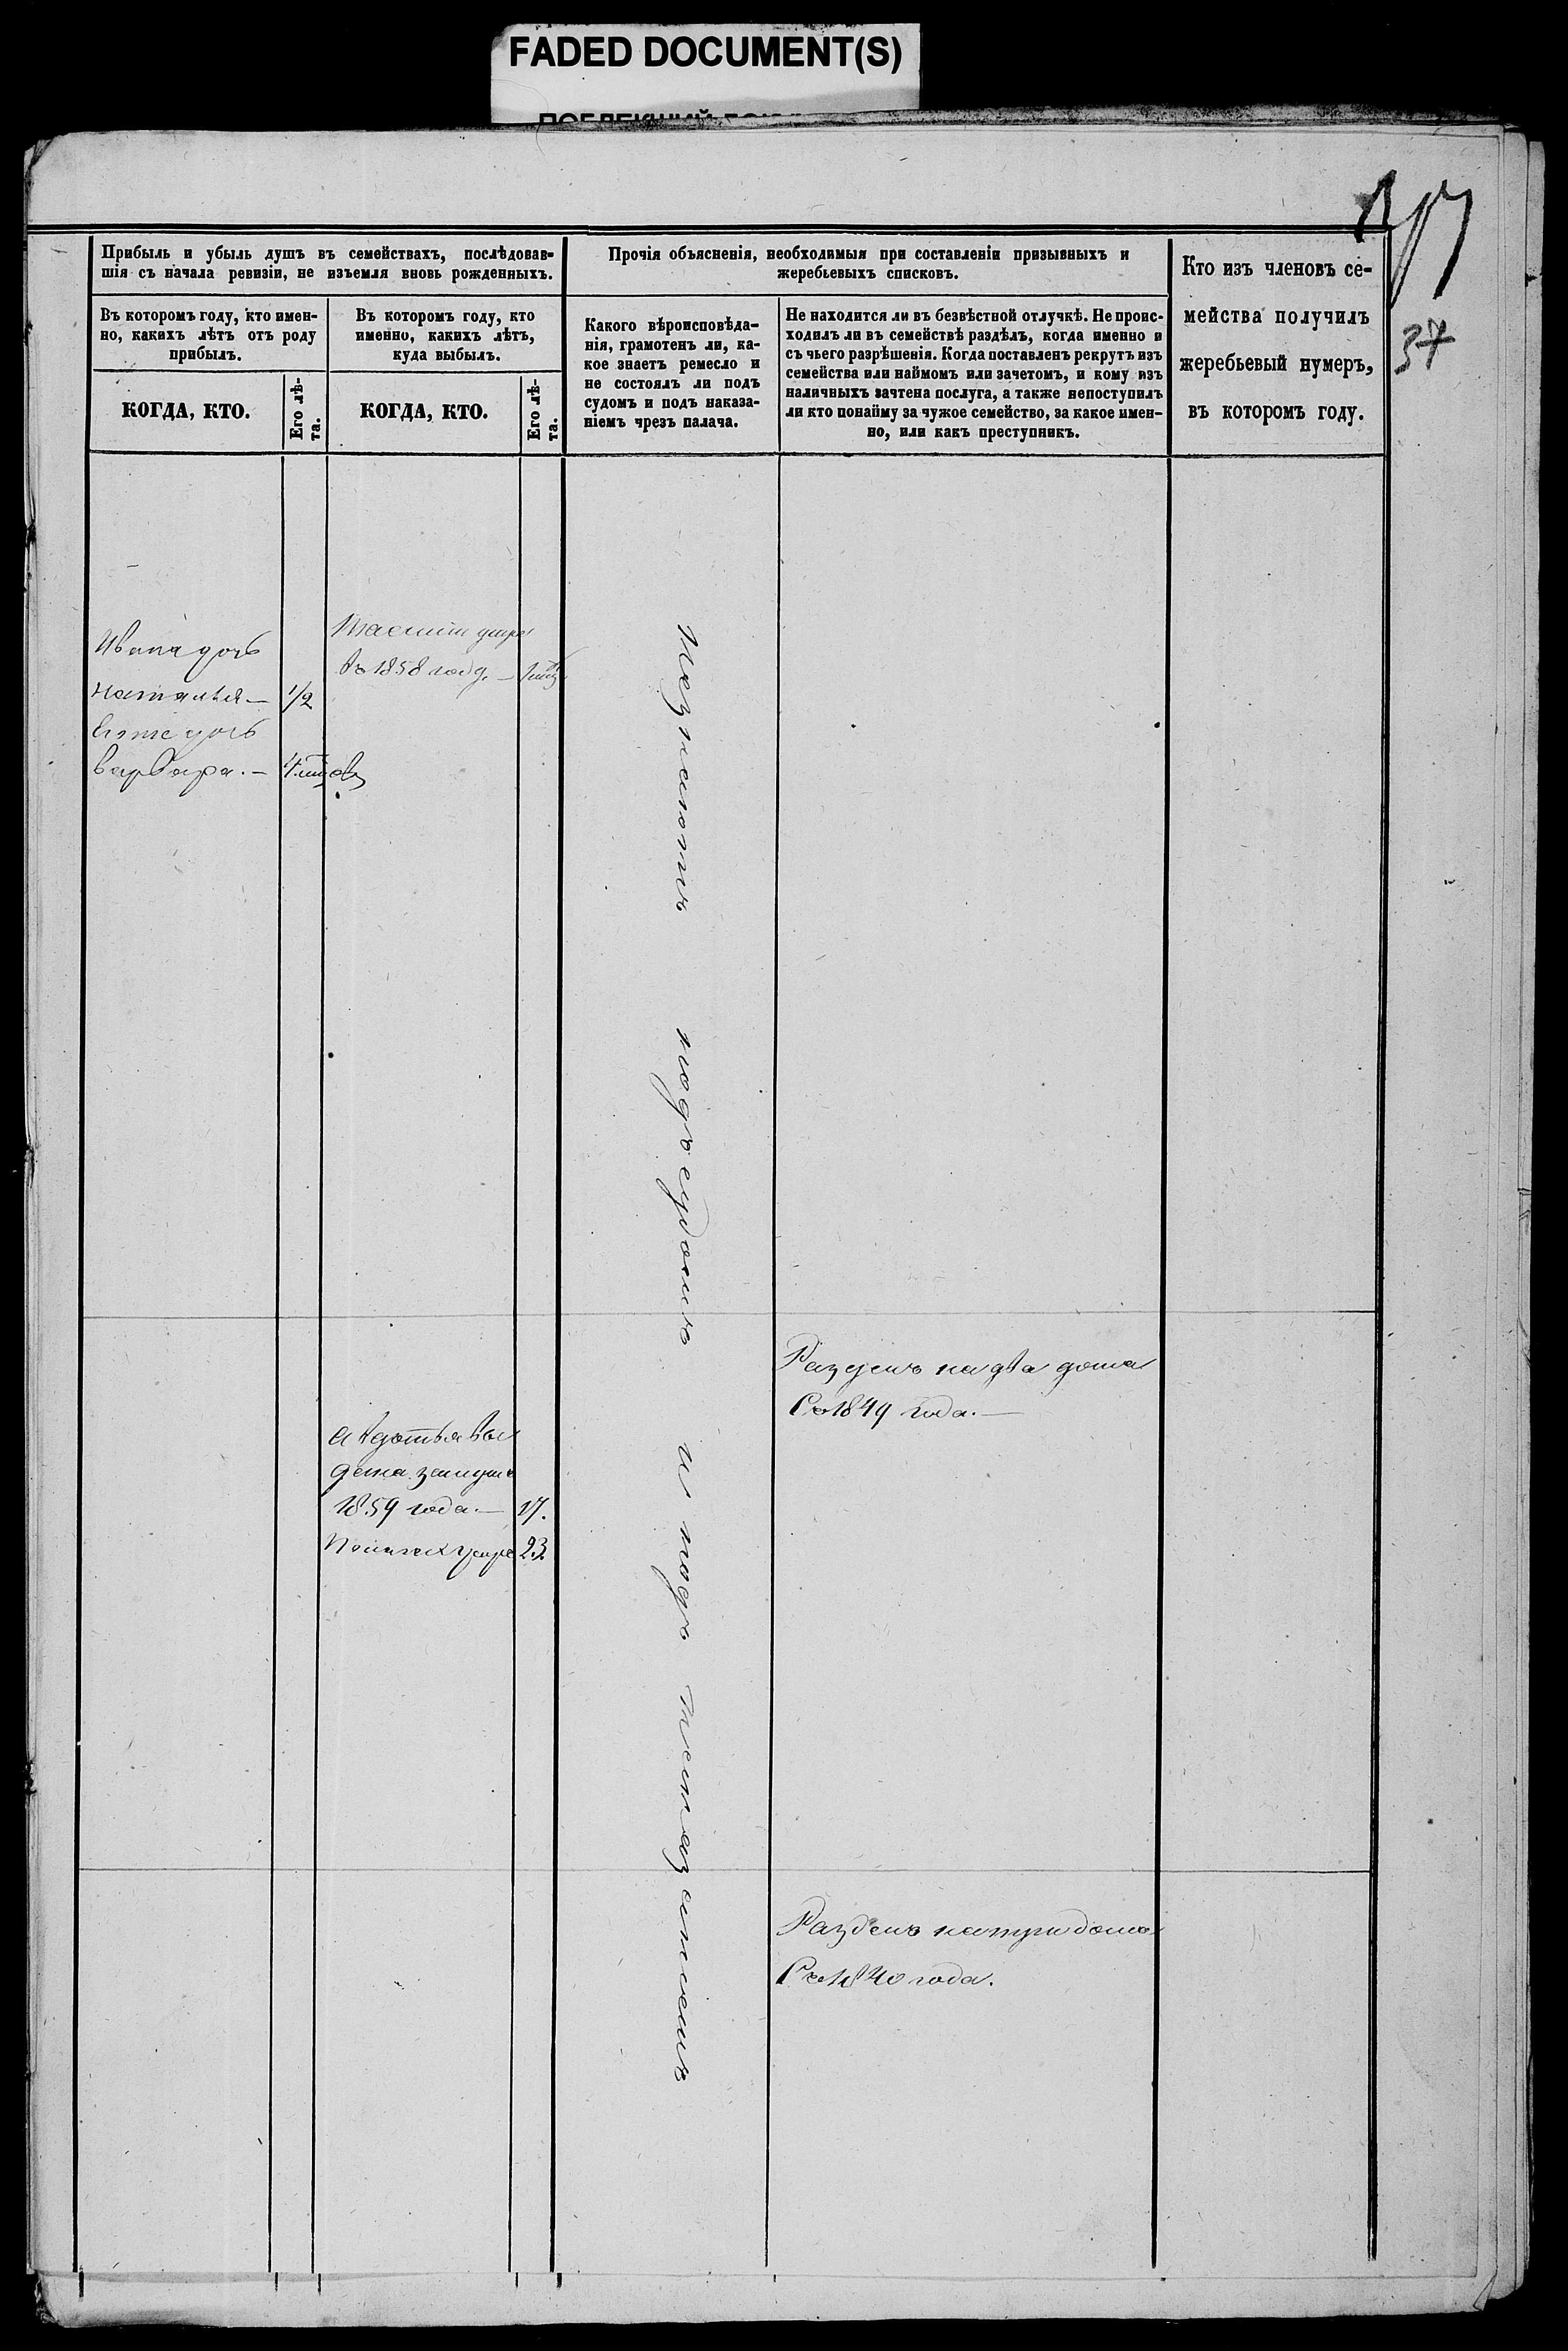 FADED DOCUMENT(S)
37
Прибыль и убыль душъ въ семействахъ, послѣдовав-
шія съ начала ревизіи, не изъемля вновь рожденныхъ.
Въ которомъ году, кто имен-
но, какихъ лѣтъ отъ роду
прибылъ.
КОГДА, КТО.
Его лѣ-
та.
Въ которомъ году, кто
именно, какихъ лѣтъ,
куда выбылъ.
КОГДА, КТО.
Его лѣ-
та.
Прочія объясненія, необходимыя при составленіи призывныхъ и
жеребьевыхъ списковъ.
Какого вѣроисповѣда-
нія, грамотенъ ли, ка-
кое знаетъ ремесло и
не состоялъ ли подъ
судомъ и подъ наказа-
ніемъ чрезъ палача.
Не находится ли въ безвѣстной отлучкѣ. Не проис-
ходилъ ли въ семействѣ раздѣлъ, когда именно и
съ чьего разрѣшенія. Когда поставленъ рекрутъ изъ
семейства или наймомъ или зачетомъ, и кому изъ
наличныхъ зачтена послуга, а также непоступилъ
ли кто понайму за чужое семейство, за какое имен-
но, или какъ преступникъ.
Кто изъ членовъ се-
мейства получилъ
жеребьевый нумеръ,
въ которомъ году.
Ивана дочь
Наталья — 1/2
Его же дочь
Варвара. — 4.
въ 1858 году. —
Авдотья
дета замужъ
1859 года. — 17.
23.
подъ судомъ и подъ наказаніемъ
Разделъ на два дома
Съ 1849 года. —
Разделъ на три дома
Съ 1840 года.